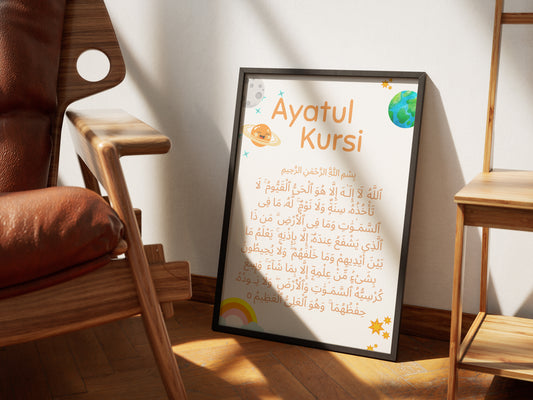 Ayatul
Kursi
بِسْمِ اللهِ الرَّحْمٰنِ الرَّحِيْمِ
اَللهُ لَآ اِلٰهَ اِلَّا هُوَ الْحَيُّ الْقَيُّوْمُ ۚ لَا
تَأْخُذُهٗ سِنَةٌ وَّلَا نَوْمٌ ۗ لَهٗ مَا فِى
السَّمٰوٰتِ وَمَا فِى الْاَرْضِ ۗ مَنْ ذَا
الَّذِيْ يَشْفَعُ عِنْدَهٗٓ اِلَّا بِاِذْنِهٖ ۗ يَعْلَمُ مَا
بَيْنَ اَيْدِيْهِمْ وَمَا خَلْفَهُمْ ۚ وَلَا يُحِيْطُوْنَ
بِشَيْءٍ مِّنْ عِلْمِهٖٓ اِلَّا بِمَا شَآءَ ۚ وَسِعَ
كُرْسِيُّهُ السَّمٰوٰتِ وَالْاَرْضَ ۚ وَلَا يَـُٔوْدُهٗ
حِفْظُهُمَا ۚ وَهُوَ الْعَلِيُّ الْعَظِيْمُ ٥